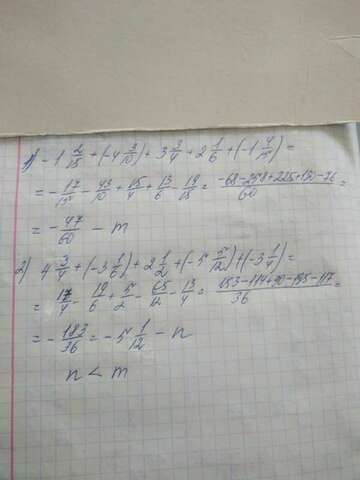 1) - 1 2/15 + (- 4 3/10) + 3 3/4 + 2 1/6 + (- 1 4/15) =
= - 17/15 - 43/10 + 15/4 + 13/6 - 19/15 = (-68-258+225+130-76)/60 =
= - 47/60 - m
2) 4 3/4 + (- 3 1/6) + 2 1/2 + (- 5 5/12) + (- 3 1/4) =
= 17/4 - 19/6 + 5/2 - 65/12 - 13/4 = (153-114+90-195-117)/36 =
= - 183/36 = - 5 1/12 - n
n < m